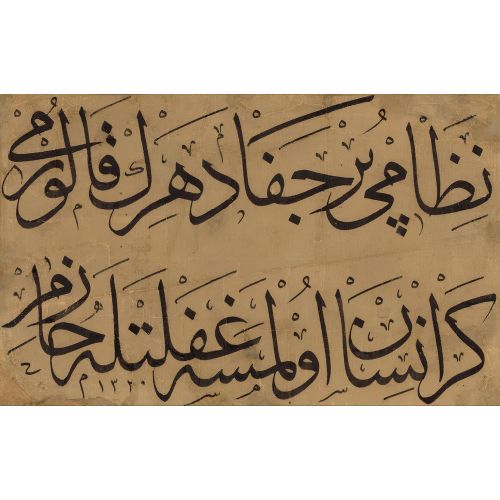 نظامی پر جفا دهرك قالورمی
كر انسان اولمسه غفلتله حازم
١٣٢٠